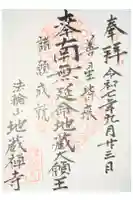 奉拝
令和二年九月廿三日
善星皆来
本尊南無延命地蔵大願王
諸願成就
法輪山地蔵禅寺